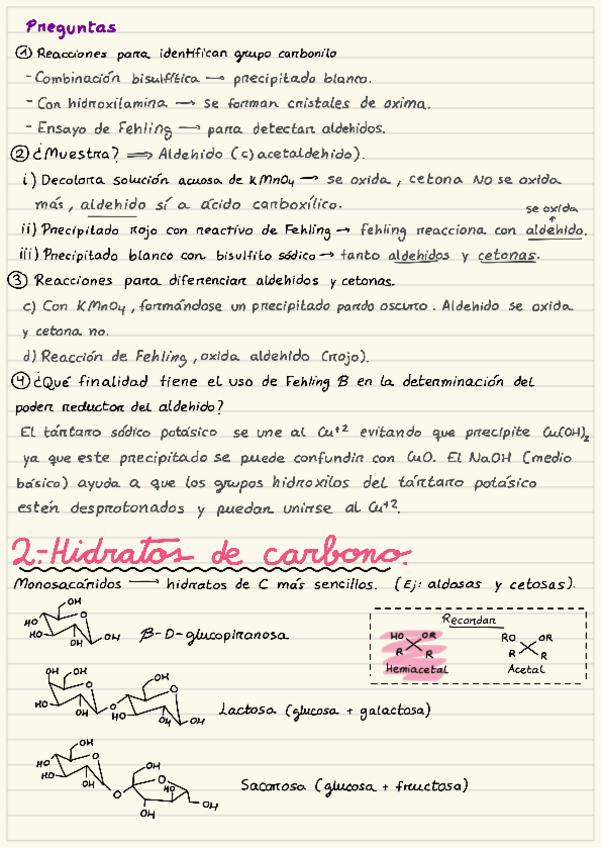 Preguntas
① Reacciones para identifican grupo carbonilo
- Combinación bisulfítica → precipitado blanco.
- Con hidroxilamina → se forman cristales de oxima.
- Ensayo de Fehling → para detectar aldehidos.
② ¿Muestra? ⟹ Aldehido (c) acetaldehido).
i) Decolora solución acuosa de KMnO4 → se oxida, cetona NO se oxida
más, aldehido sí a ácido carboxílico.
se oxida
ii) Precipitado rojo con reactivo de Fehling → fehling reacciona con aldehido.
iii) Precipitado blanco con bisulfito sódico → tanto aldehidos y cetonas.
③ Reacciones para diferenciar aldehidos y cetonas.
c) Con KMnO4, formándose un precipitado pardo oscuro. Aldehido se oxida
y cetona no.
d) Reacción de Fehling, oxida aldehido (rojo).
④ ¿Qué finalidad tiene el uso de Fehling B en la determinación del
poder reductor del aldehido?
El tártaro sódico potásico se une al Cu+2 evitando que precipite Cu(OH)2
ya que este precipitado se puede confundir con CuO. El NaOH (medio
básico) ayuda a que los grupos hidroxilos del tártaro potásico
estén desprotonados y puedan unirse al Cu+2.
2.-Hidratos de carbono.
Monosacáridos → hidratos de C más sencillos. (Ej: aldosas y cetosas).
OH
HO
O
HO
OH
OH
β-D-glucopiranosa
Recordar
HO OR
R R
Hemiacetal
RO OR
R R
Acetal
OH OH
O
HO
OH
O
OH
O
HO
OH
OH
Lactosa (glucosa + galactosa)
OH
HO
O
HO
OH
O
OH
O
HO
OH
OH
Sacarosa (glucosa + fructosa)